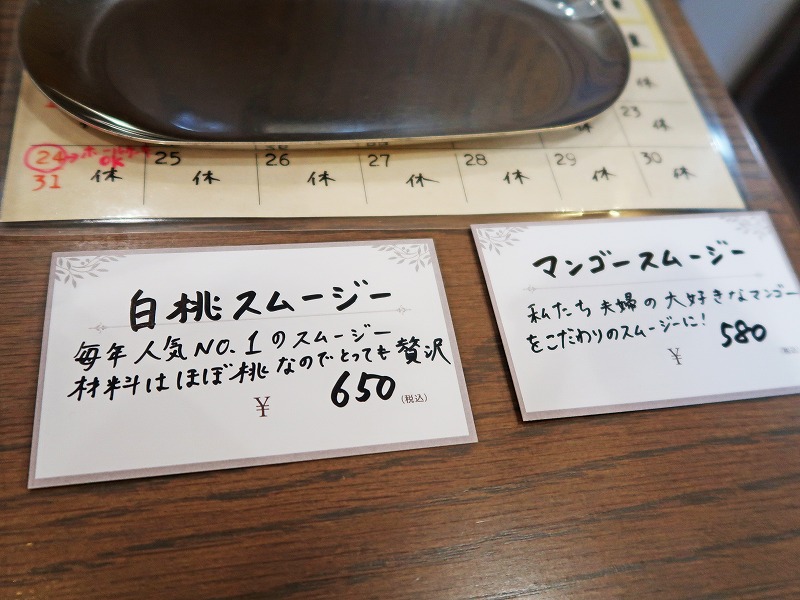 休
23
休
休
24
31
休
25
休
26
休
27
休
28
休
29
休
30
休
白桃スムージー
毎年人気NO.1のスムージー
材料はほぼ桃なのでとっても贅沢
¥ 650 (税込)
マンゴースムージー
私たち夫婦の大好きなマンゴー
をこだわりのスムージーに!
¥ 580